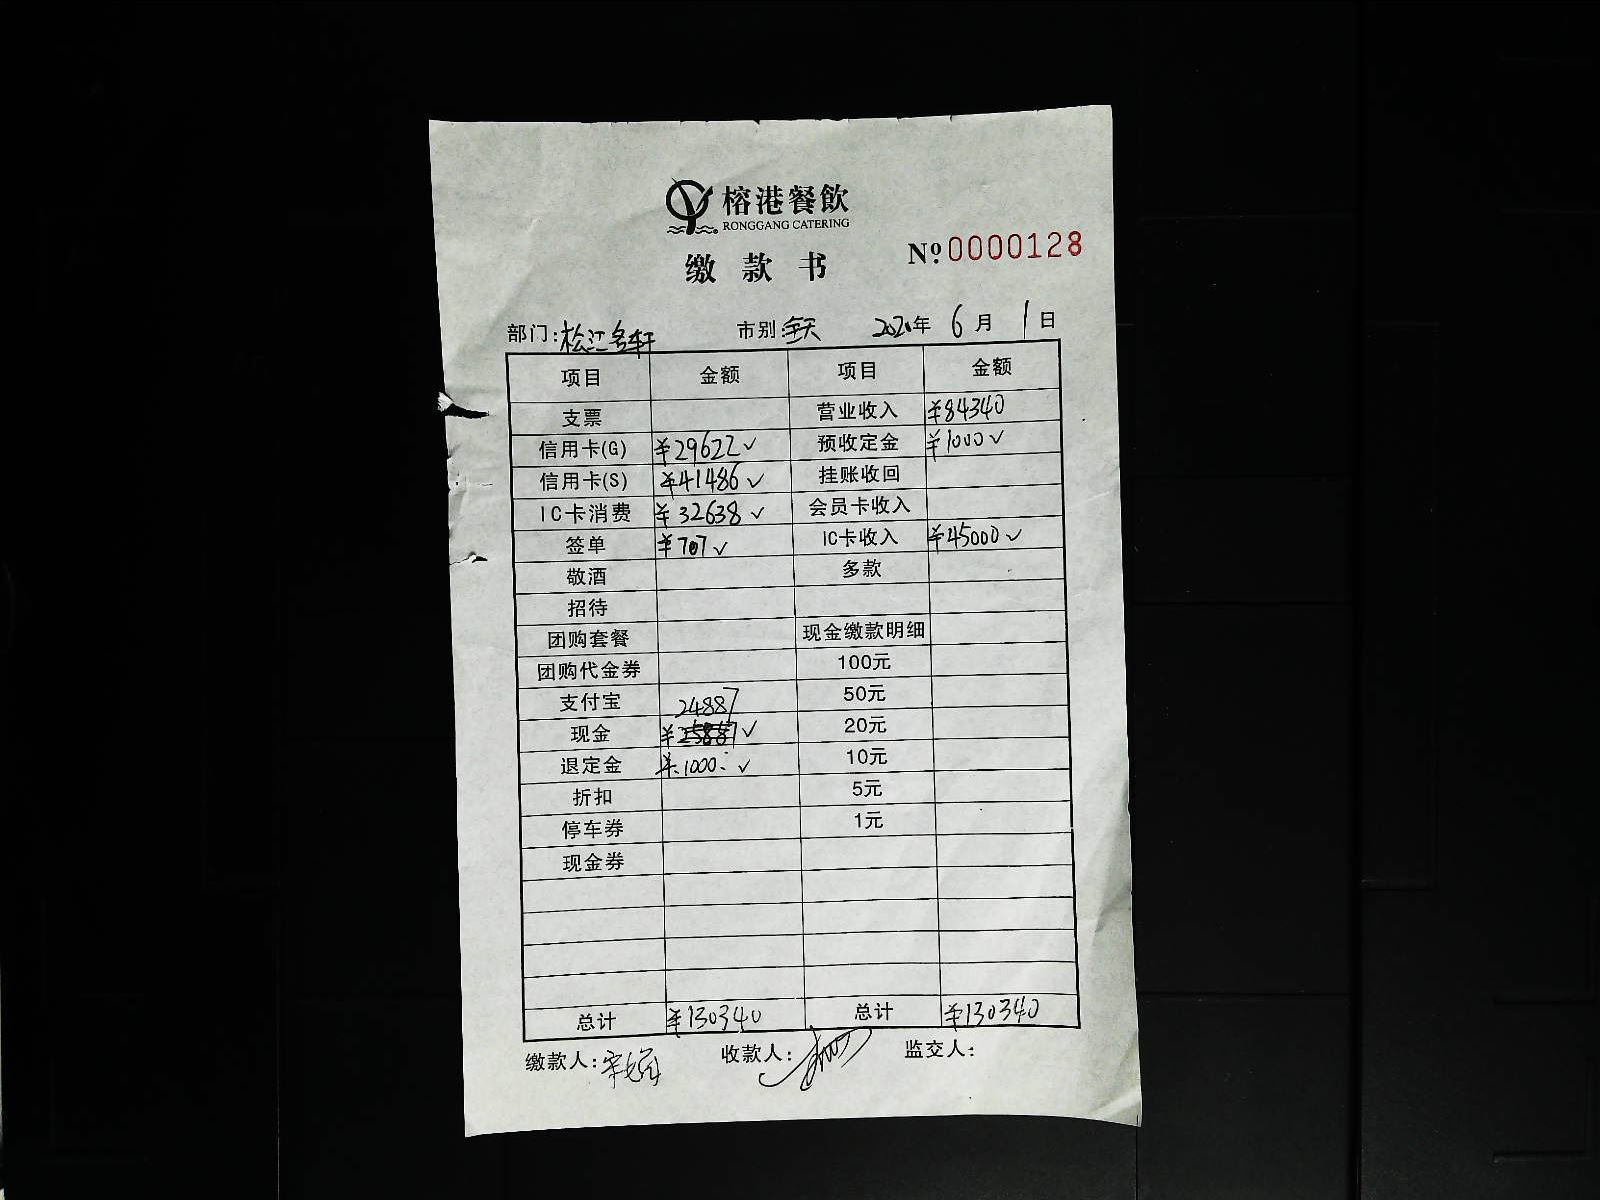 榕港餐飲
RONGGANG CATERING
缴款书 №0000128
部门:松江名轩 市别:全天 2020年6月1日
项目 金额 项目 金额
支票 营业收入 ¥84340
信用卡(G) ¥29622✓ 预收定金 ¥1000✓
信用卡(S) ¥41486✓ 挂账收回
IC卡消费 ¥32638✓ 会员卡收入
签单 ¥707✓ IC卡收入 ¥45000✓
敬酒 多款
招待
团购套餐 现金缴款明细
团购代金券 100元
支付宝 24887 50元
现金 ¥25887✓ 20元
退定金 ¥1000✓ 10元
折扣 5元
停车券 1元
现金券
总计 ¥130340 总计 ¥130340
缴款人: 收款人: 监交人: